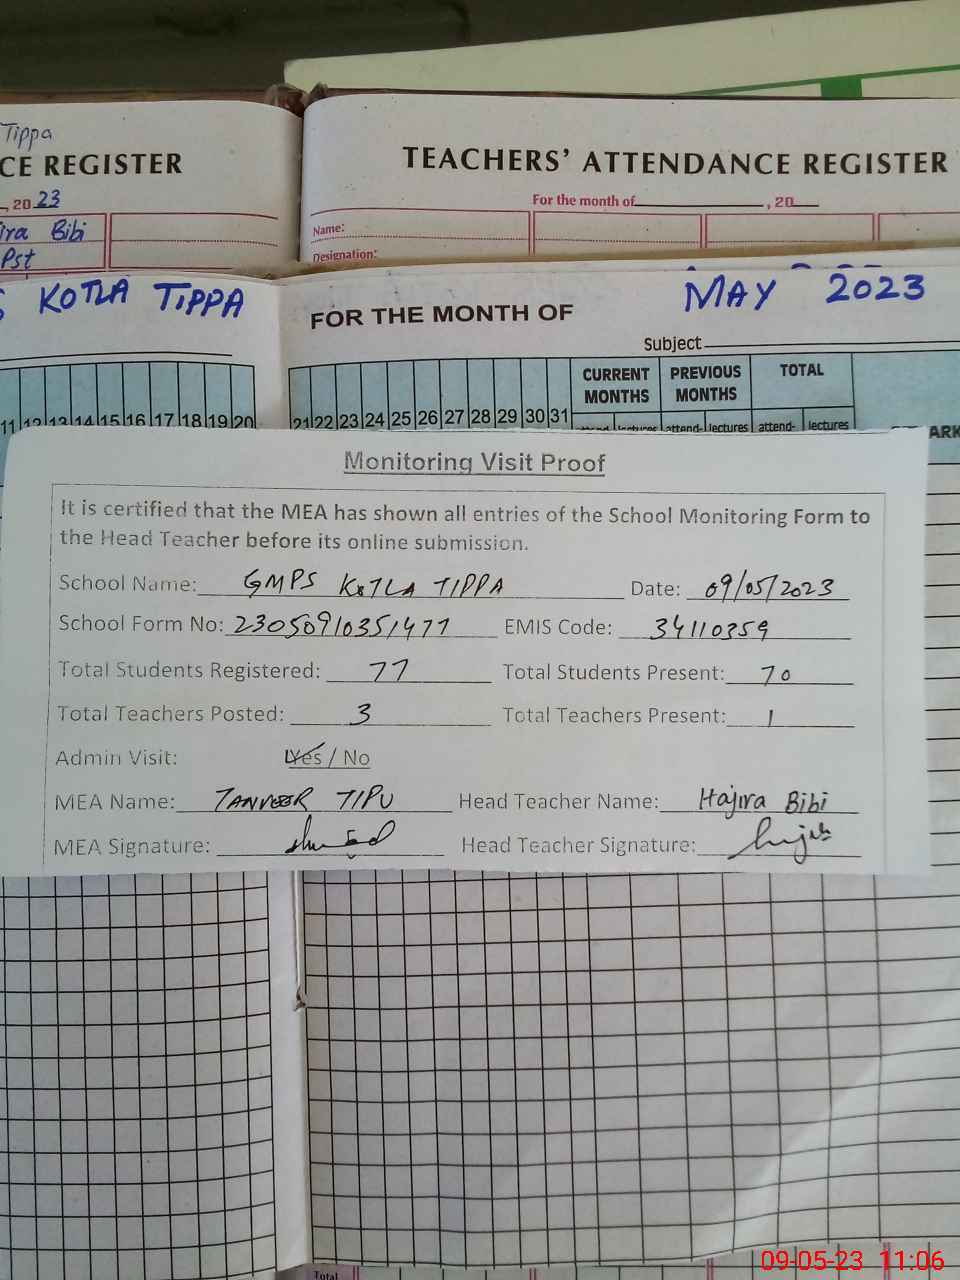 Tippa
CE REGISTER
, 20 23
ira Bibi
Pst
TEACHERS' ATTENDANCE REGISTER
For the month of , 20
Name:
Designation:
KOTLA TIPPA
FOR THE MONTH OF MAY 2023
Subject
CURRENT MONTHS PREVIOUS MONTHS TOTAL
11 12 13 14 15 16 17 18 19 20 21 22 23 24 25 26 27 28 29 30 31
lectures attend- lectures attend- lectures
ARK
Monitoring Visit Proof
It is certified that the MEA has shown all entries of the School Monitoring Form to
the Head Teacher before its online submission.
School Name: GMPS KOTLA TIPPA Date: 09/05/2023
School Form No: EMIS Code: 34110359
Total Students Registered: 77 Total Students Present: 70
Total Teachers Posted: 3 Total Teachers Present: 1
Admin Visit: Yes / No
MEA Name: TANVEER TIPU Head Teacher Name: Hajira Bibi
MEA Signature: Head Teacher Signature:
Total
09-05-23 11:06